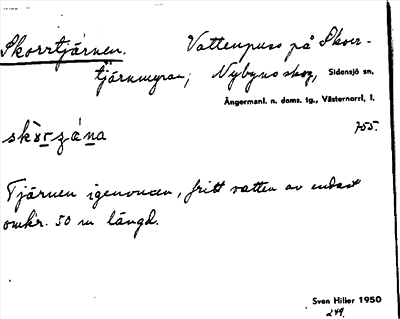 Skorrtjärnen. Vattenpuss på Skorr-
tjärnmyran; Nybyns skog, Sidensjö sn,
Ångermanl. n. doms. tg., Västernorrl, l.
755.
Tjärnen igenvuxen, fritt vatten av endast
omkr. 50 m längd.
Sven Hiller 1950
249.